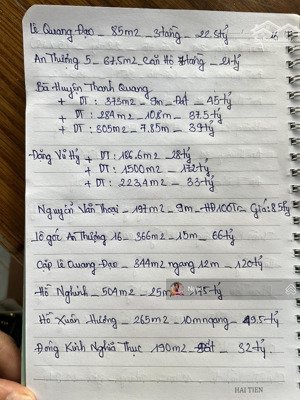 Lê Quang Đạo _ 85m2 _ 3tầng _ 22.5tỷ
An Thượng 5 _ 67.5m2 Căn Hộ 7tầng _ 21tỷ
Bà Huyện Thanh Quang
+ DT : 373m2 _ 9m _ Đất _ 45tỷ
+ DT : 284m2 _ 10.8m _ 37.5tỷ
+ DT : 305m2 _ 7.85m _ 39tỷ
Đặng Vũ Hỷ + DT : 186.6m2 _ 28tỷ
+ DT : 1500m2 _ 172tỷ
+ DT : 223.4m2 _ 33tỷ
Nguyễn Văn Thoại _ 197m2 _ 9m _ HĐ100Tr _ Giá: 85tỷ
Lô góc An Thượng 16 _ 366m2 _ 15m _ 66tỷ
Cặp Lê Quang Đạo _ 344m2 ngang 12m _ 120tỷ
Hồ Nghinh _ 504m2 _ 25m _ 175tỷ
Hồ Xuân Hương _ 265m2 _ 10m ngang _ 49.5tỷ
Đông Kinh Nghĩa Thục 190m2 _ đất _ 32tỷ.
HAI TIEN